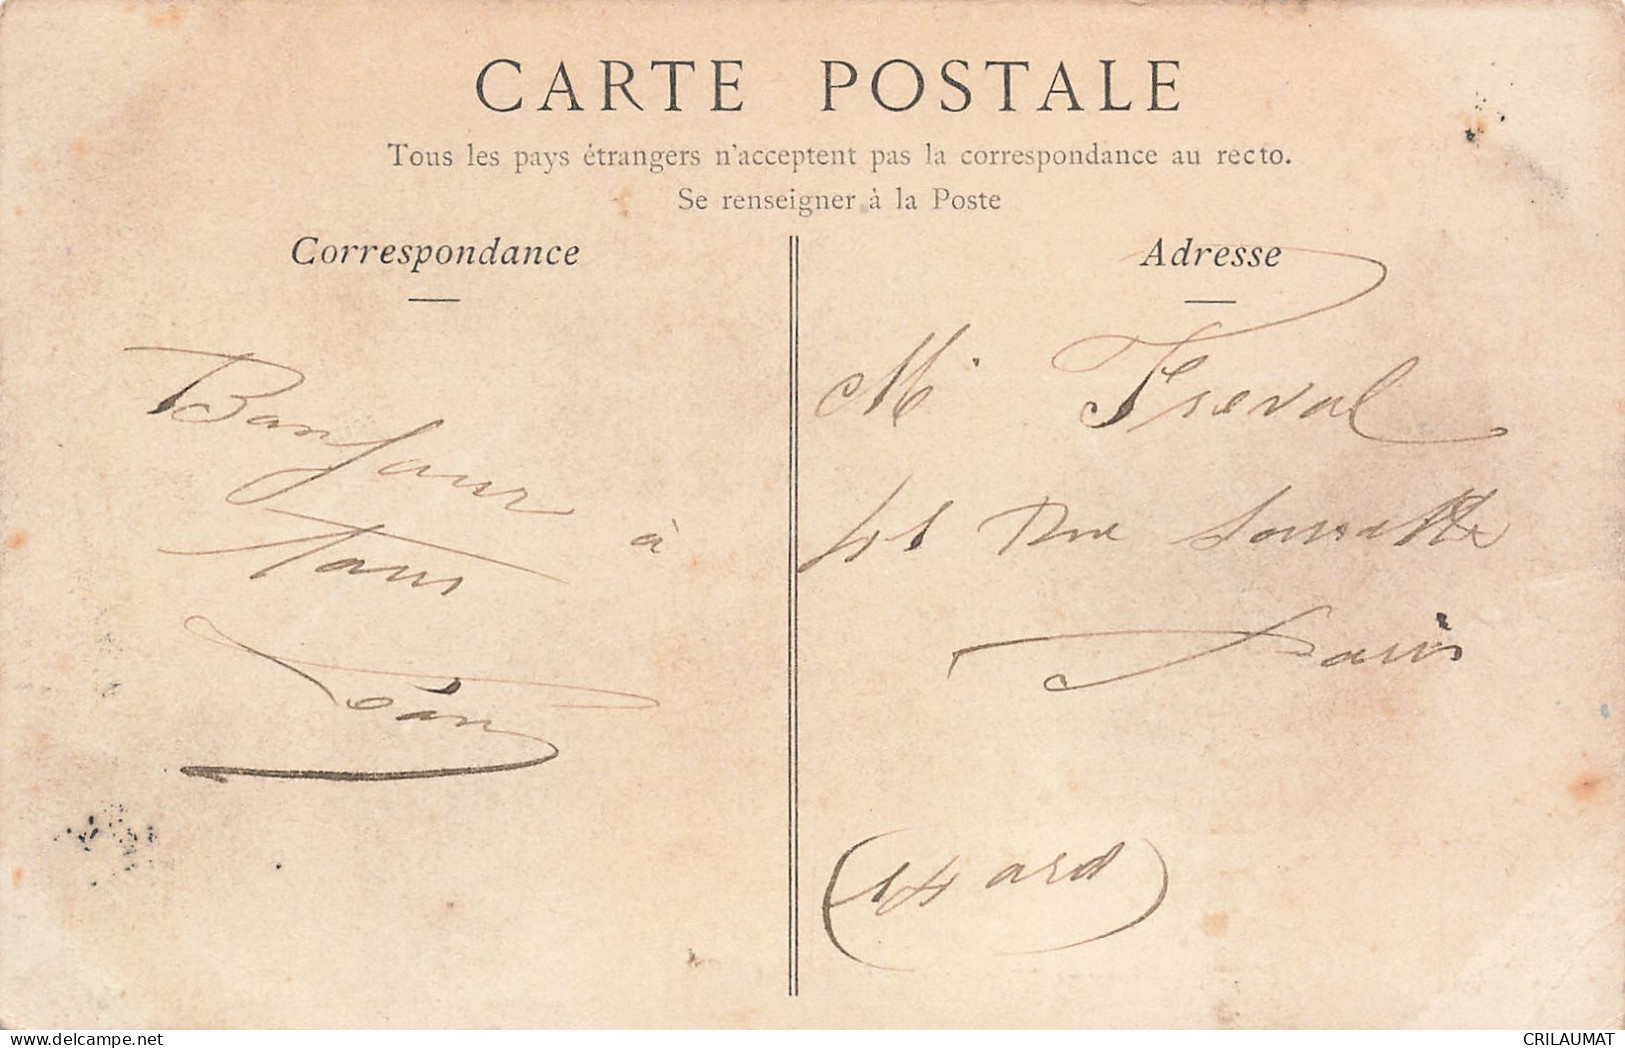 CARTE POSTALE
Tous les pays étrangers n'acceptent pas la correspondance au recto.
Se renseigner à la Poste
Correspondance
Bonjour à
tous
Léon
Adresse
Mr Freval
41 Rue
Paris
(14 ard)
CRILAUMAT